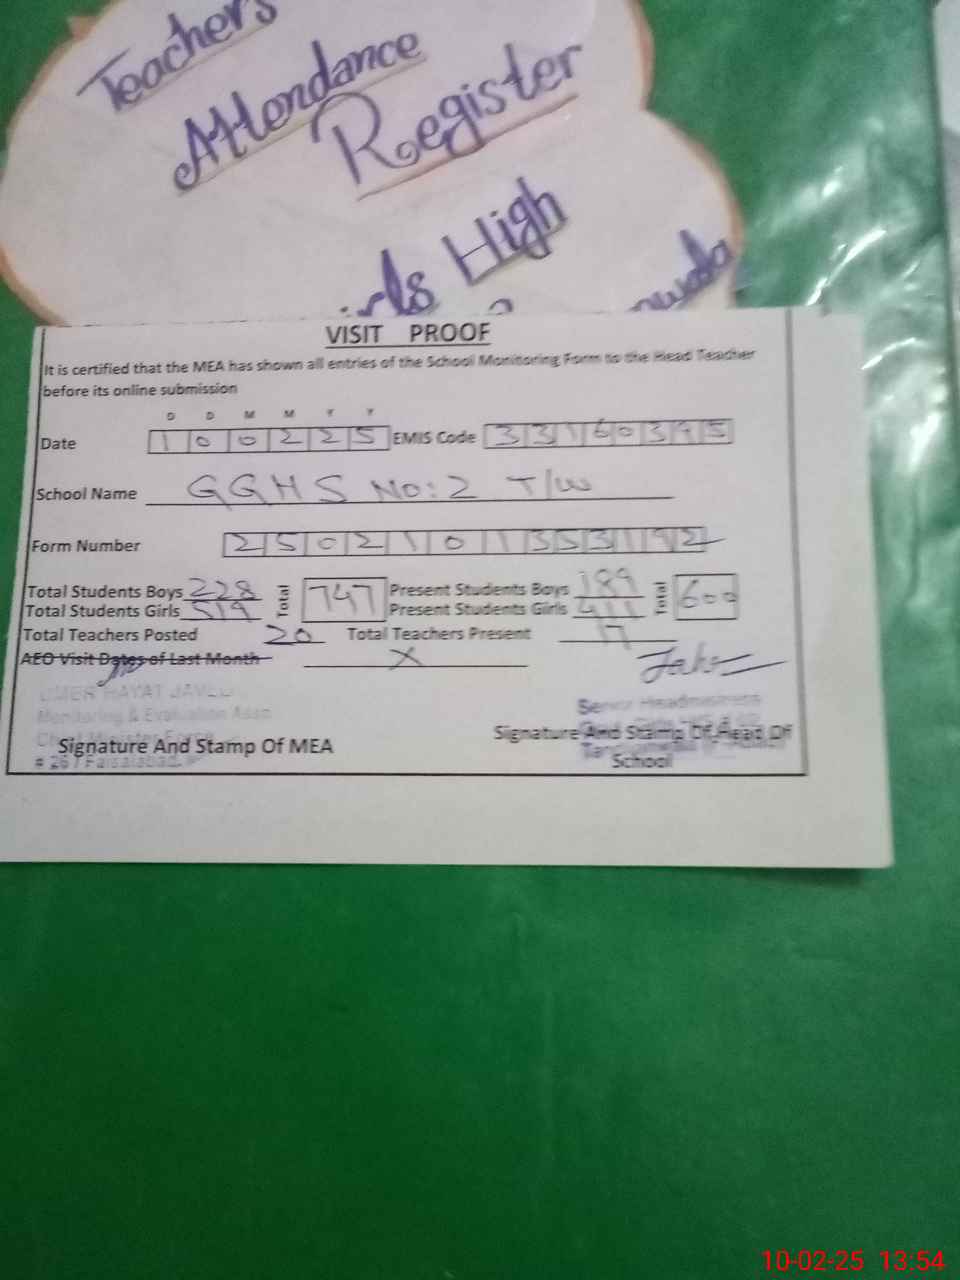 Teachers
Attendance
Register
High
VISIT PROOF
It is certified that the MEA has shown all entries of the School Monitoring Form to the Head Teacher
before its online submission
D D M M Y Y
Date 1 0 0 2 2 5 EMIS Code 3 3 1 6 0 3 9 5
School Name GGHS No: 2 T/W
Form Number
Total Students Boys 228 Total 747 Present Students Boys 189 Total 600
Total Students Girls 519 Present Students Girls 411
Total Teachers Posted 20 Total Teachers Present 17
AEO Visit Dates of Last Month X
UMER HAYAT JAVED
Monitoring & Evaluation
Senior Headmistress
Signature And Stamp Of MEA
Signature And Stamp Of Head Of
School
# 267 Faisalabad.
10-02-25 13:54